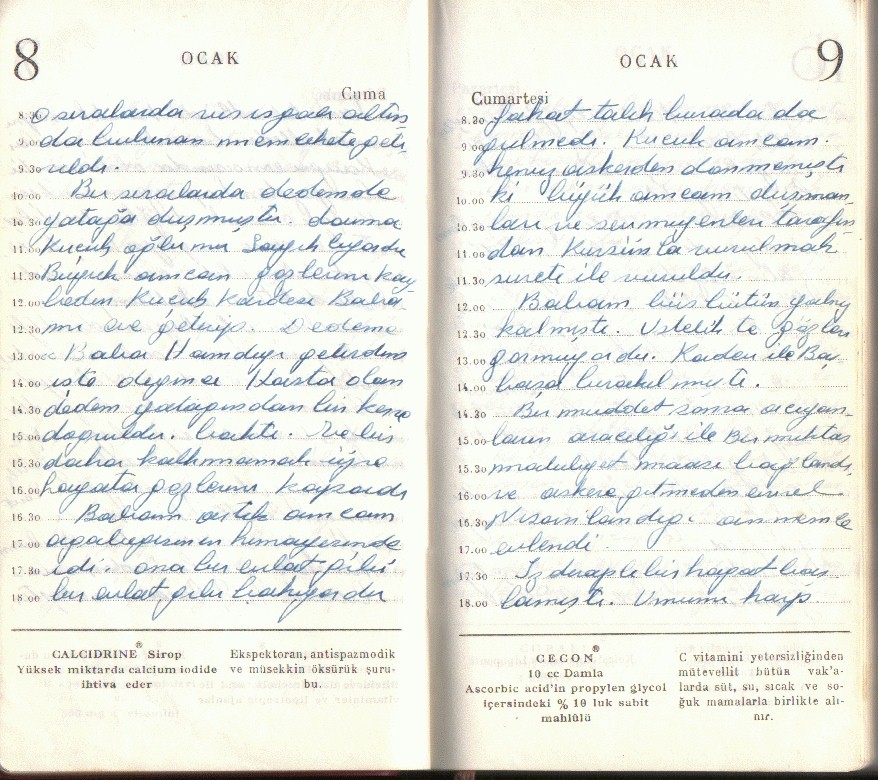 8
OCAK
Cuma
8.30 o sıralarda rus işgalı altın
9.00 da bulunan memlekete geti
9.30 rıldı.
10.00 Bu sıralarda dedemde
10.30 yatağa duşmuştu. daıma
11.00 Kucuk oğlumu Sayıklıyordu
11.30 Büyuk amcam gozlerını kay
12.00 beden Kucuk Kardesı Baba-
12.30 mı eve getırıp. Dedeme
13.00 Baba Hamdıyı getırdım
işte deyınce Hasta olan
14.00 dedem yatagından bir kere
14.30 dogruldu. baktı. Ve bir
15.00 daha kalkmamak üzre
15.30 hayata gozlerını kapadı
16.00
16.30 Babam artık amcam
17.00 agabeyısının hımayesınde
17.30 idi. ona bır evlat gıbı
18.00 bır evlat gıbı bakıyordu
CALCIDRINE® Sirop
Yüksek miktarda calcium iodide
ihtiva eder
Ekspektoran, antispazmodik
ve müsekkin öksürük şuru-
bu.
OCAK
9
Cumartesi
8.30 fakat talıh burada da
9.00 gulmedı. Kucuk amcam
9.30 henuz askerden donmemıştı
10.00 ki büyük amcam duşman
10.30 ları ve sevmıyenlerı tarafın
11.00 dan Kurşunla vurulmak
11.30 suretı ile vuruldu.
12.00 Babam büs bütün yalnız
12.30 kalmıştı. Ustelik te gözlerı
13.00 gormuyordu. Kaderı ile Baş
14.00 başa bırakılmıştı.
14.30 Bır muddet sonra acıyan-
15.00 ların aracılığı ile Bır mıktar
15.30 malulıyet maaşı bağlandı,
16.00 ve askere gıtmeden evvel
16.30 Nışanlandıgı annemle
17.00 evlendi.
17.30 Iztıraplı bır hayat baş
18.00 lamıştı. Umumı harp
CECON®
10 cc Damla
Ascorbic acid'in propylen glycol
içersindeki % 10 luk sabit
mahlülü
C vitamini yetersizliğinden
mütevellit bütün vak'a-
larda süt, su, sıcak ve so-
ğuk mamalarla birlikte alı-
nır.